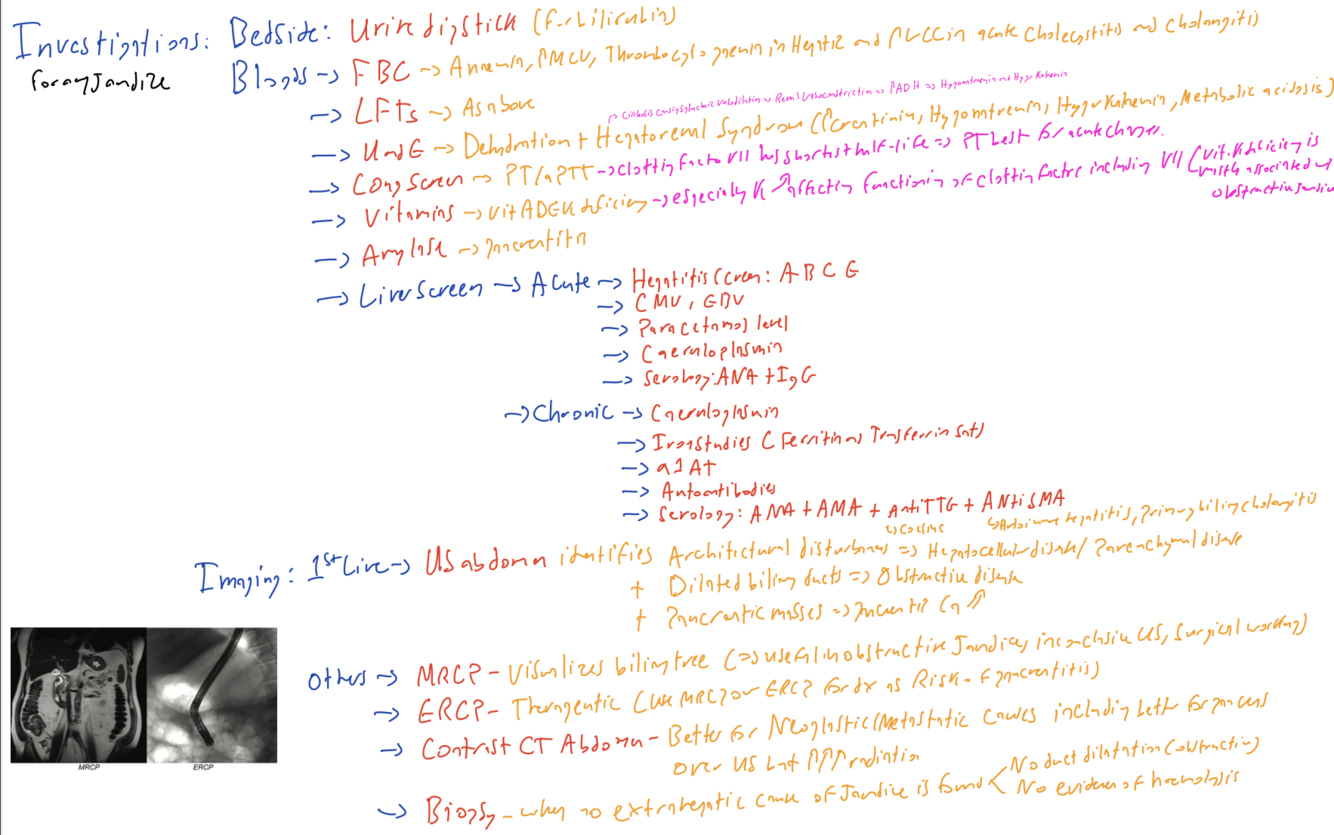 Investigations: Bedside: Urine dipstick (for bilirubin)
for any Jandice
Bloods -> FBC -> Anaemia, ↑MCV, Thrombocytopaenia in Hepatic and ↑WCC in acute Cholecystitis and Cholangitis
-> LFTs -> As above
-> Cirrhosis causing splanchnic vasodilation => Renal vasoconstriction => ↑ADH => Hyponatremia and Hyperkalaemia
-> U and E -> Dehydration + Hepatorenal Syndrome (↑Creatinin, Hyponatremia, Hyperkalemia, Metabolic acidosis)
-> Coag Screen -> PT/aPTT -> clotting factor VII has shortest half-life => PT best for acute changes.
-> Vitamins -> Vit ADEK deficiency -> especially K affecting functioning of clotting factor including VII (Vit. K deficiency is mostly associated with obstructive jandice
-> Amylase -> pancreatitis
-> Liver Screen -> Acute -> Hepatitis screen: A B C E
-> CMV, EBV
-> Paracetamol level
-> Caeruloplasmin
-> Serology: ANA + IgG
-> Chronic -> Caeruloplasmin
-> Iron studies (Ferritin and Transferrin Sat)
-> a1AT
-> Autoantibodies
-> Serology: ANA + AMA + AntiTTG + AntiSMA
↳ Coeliac ↳ Autoimmune hepatitis, primary biliary cholangitis
Imaging: 1st Line -> US abdomen identifies Architectural disturbances => Hepatocellular disease/ Parenchymal disease
+ Dilated biliary ducts => Obstructive disease
+ Pancreatic masses => pancreatic Ca
Others -> MRCP - Visualizes biliary tree (=> useful in obstructive Jandice, inconclusive US, Surgical working)
-> ERCP - Therapeutic (Use MRCP over ERCP for dx as Risk of pancreatitis)
-> Contrast CT Abdomen - Better for Neoplastic/Metastatic causes including better for pancreas
over US but ↑↑↑radiation
-> Biopsy - when no extrahepatic cause of Jandice is found < No duct dilatation (obstructive)
No evidence of haemolysis
MRCP
ERCP